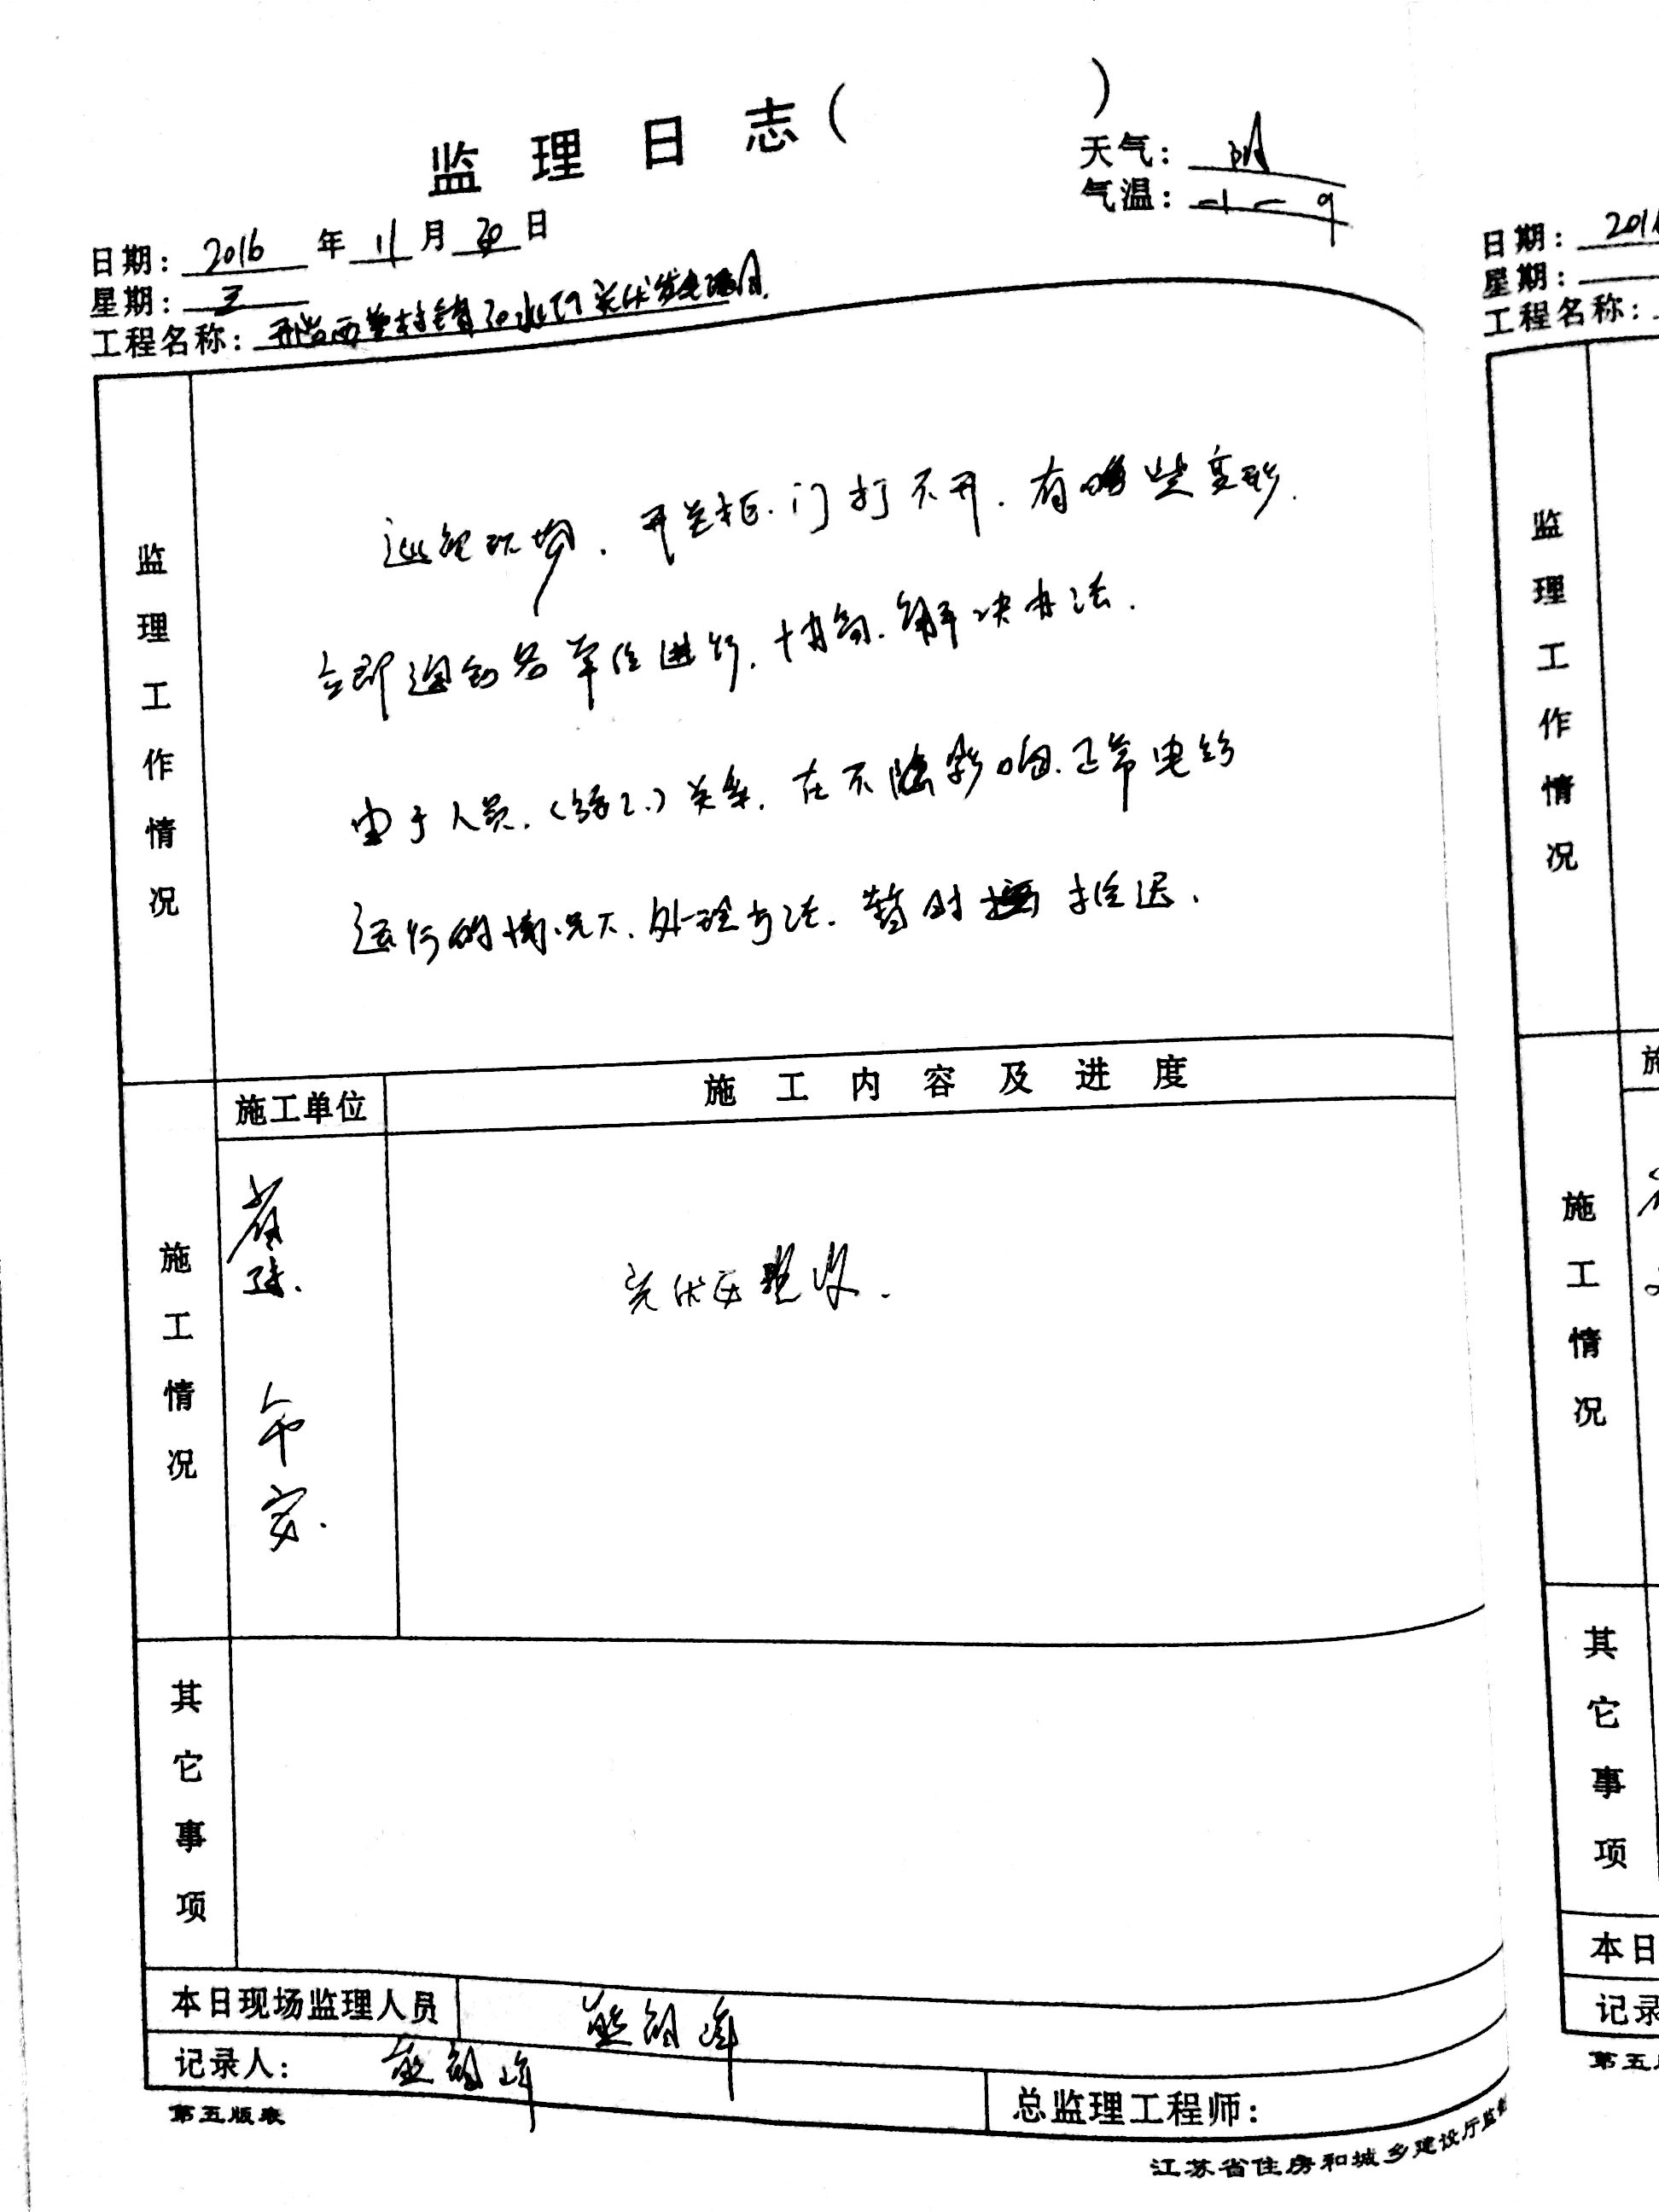 监理日志( )
天气:
气温: -1 - 9
日期: 2016 年 11 月 30 日
星期: 三
工程名称:
监理工作情况
巡视现场. 开关柜.门打不开. 有些变形.
立即通知各单位进行. 协商. 解决办法.
由于人员.( )关系. 在不影响.正常电
运行的情况下. 处理方法. 暂时推迟.
施工情况
施工单位
施工内容及进度
验收.
其它事项
本日现场监理人员
记录人:
总监理工程师:
第五版表
江苏省住房和城乡建设厅监
日期: 201
星期:
工程名称:
监理工作情况
施
施工情况
其它事项
本日
记录
第五